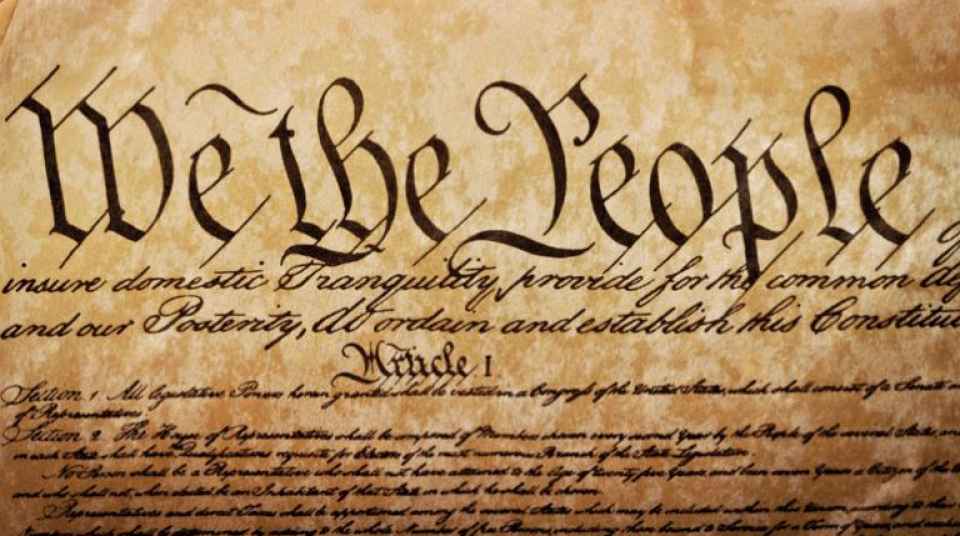 We the People
insure domestic Tranquility, provide for the common def
and our Posterity, do ordain and establish this Constitu
Article I
Section 1. All legislative Powers herein granted shall be vested in a Congress of the United States, which shall consist of a Senate
of Representatives.
Section 2. The House of Representatives shall be composed of Members chosen every second Year by the People of the several States,
in each State shall have Qualifications requisite for Electors of the most numerous Branch of the State Legislature.
No Person shall be a Representative who shall not have attained to the Age of twenty five Years and been seven Years a Citizen of the
and who shall not, when elected be an Inhabitant of that State in which he shall be chosen.
Representatives and direct Taxes shall be apportioned among the several States which may be included within this according to their